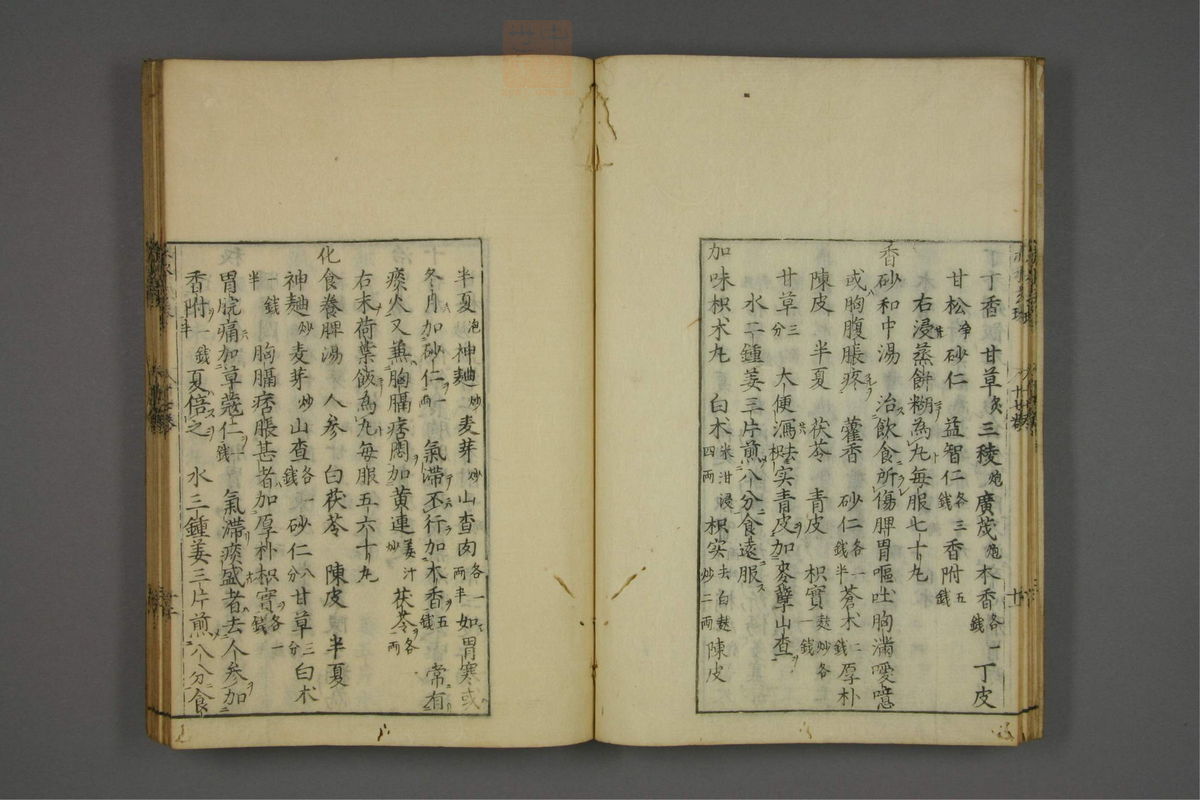 丁丁香 甘草炙 三稜炮 廣茂炮 木香各一錢 丁皮
甘松净 砂仁 益智仁各三錢 香附五錢
右浸蒸餅糊為丸每服七十丸
香砂和中湯 治飲食所傷脾胃嘔吐胸滿噯噫
或胸腹脹疼 藿香 砂仁各一錢半 蒼术二錢 厚朴
陳皮 半夏 茯苓 青皮 枳實麩炒各一錢
甘草三分 大便瀉去枳实青皮加麥糵山查
水二鍾姜三片煎八分食遠服
加味枳术丸 白术米泔浸四兩 枳实去白麩炒二兩 陳皮
半夏泡 神麯炒 麦芽炒 山查肉各一兩半 如胃寒或
冬月加砂仁一兩 氣滯不行加木香五錢 常有
痰火又兼胸膈痞悶加黄連姜汁炒 茯苓各一兩
右末荷葉飯為丸每服五六十丸
化食養脾湯 人参 白茯苓 陳皮 半夏
神麯炒 麦芽炒 山查各一錢 砂仁八分 甘草三分 白术
一錢半 胸膈痞脹甚者加厚朴枳實各一錢
胃脘痛加草蔻仁一錢 氣滯痰盛者去人参加
香附一錢半 夏倍之 水三鍾姜三片煎八分食